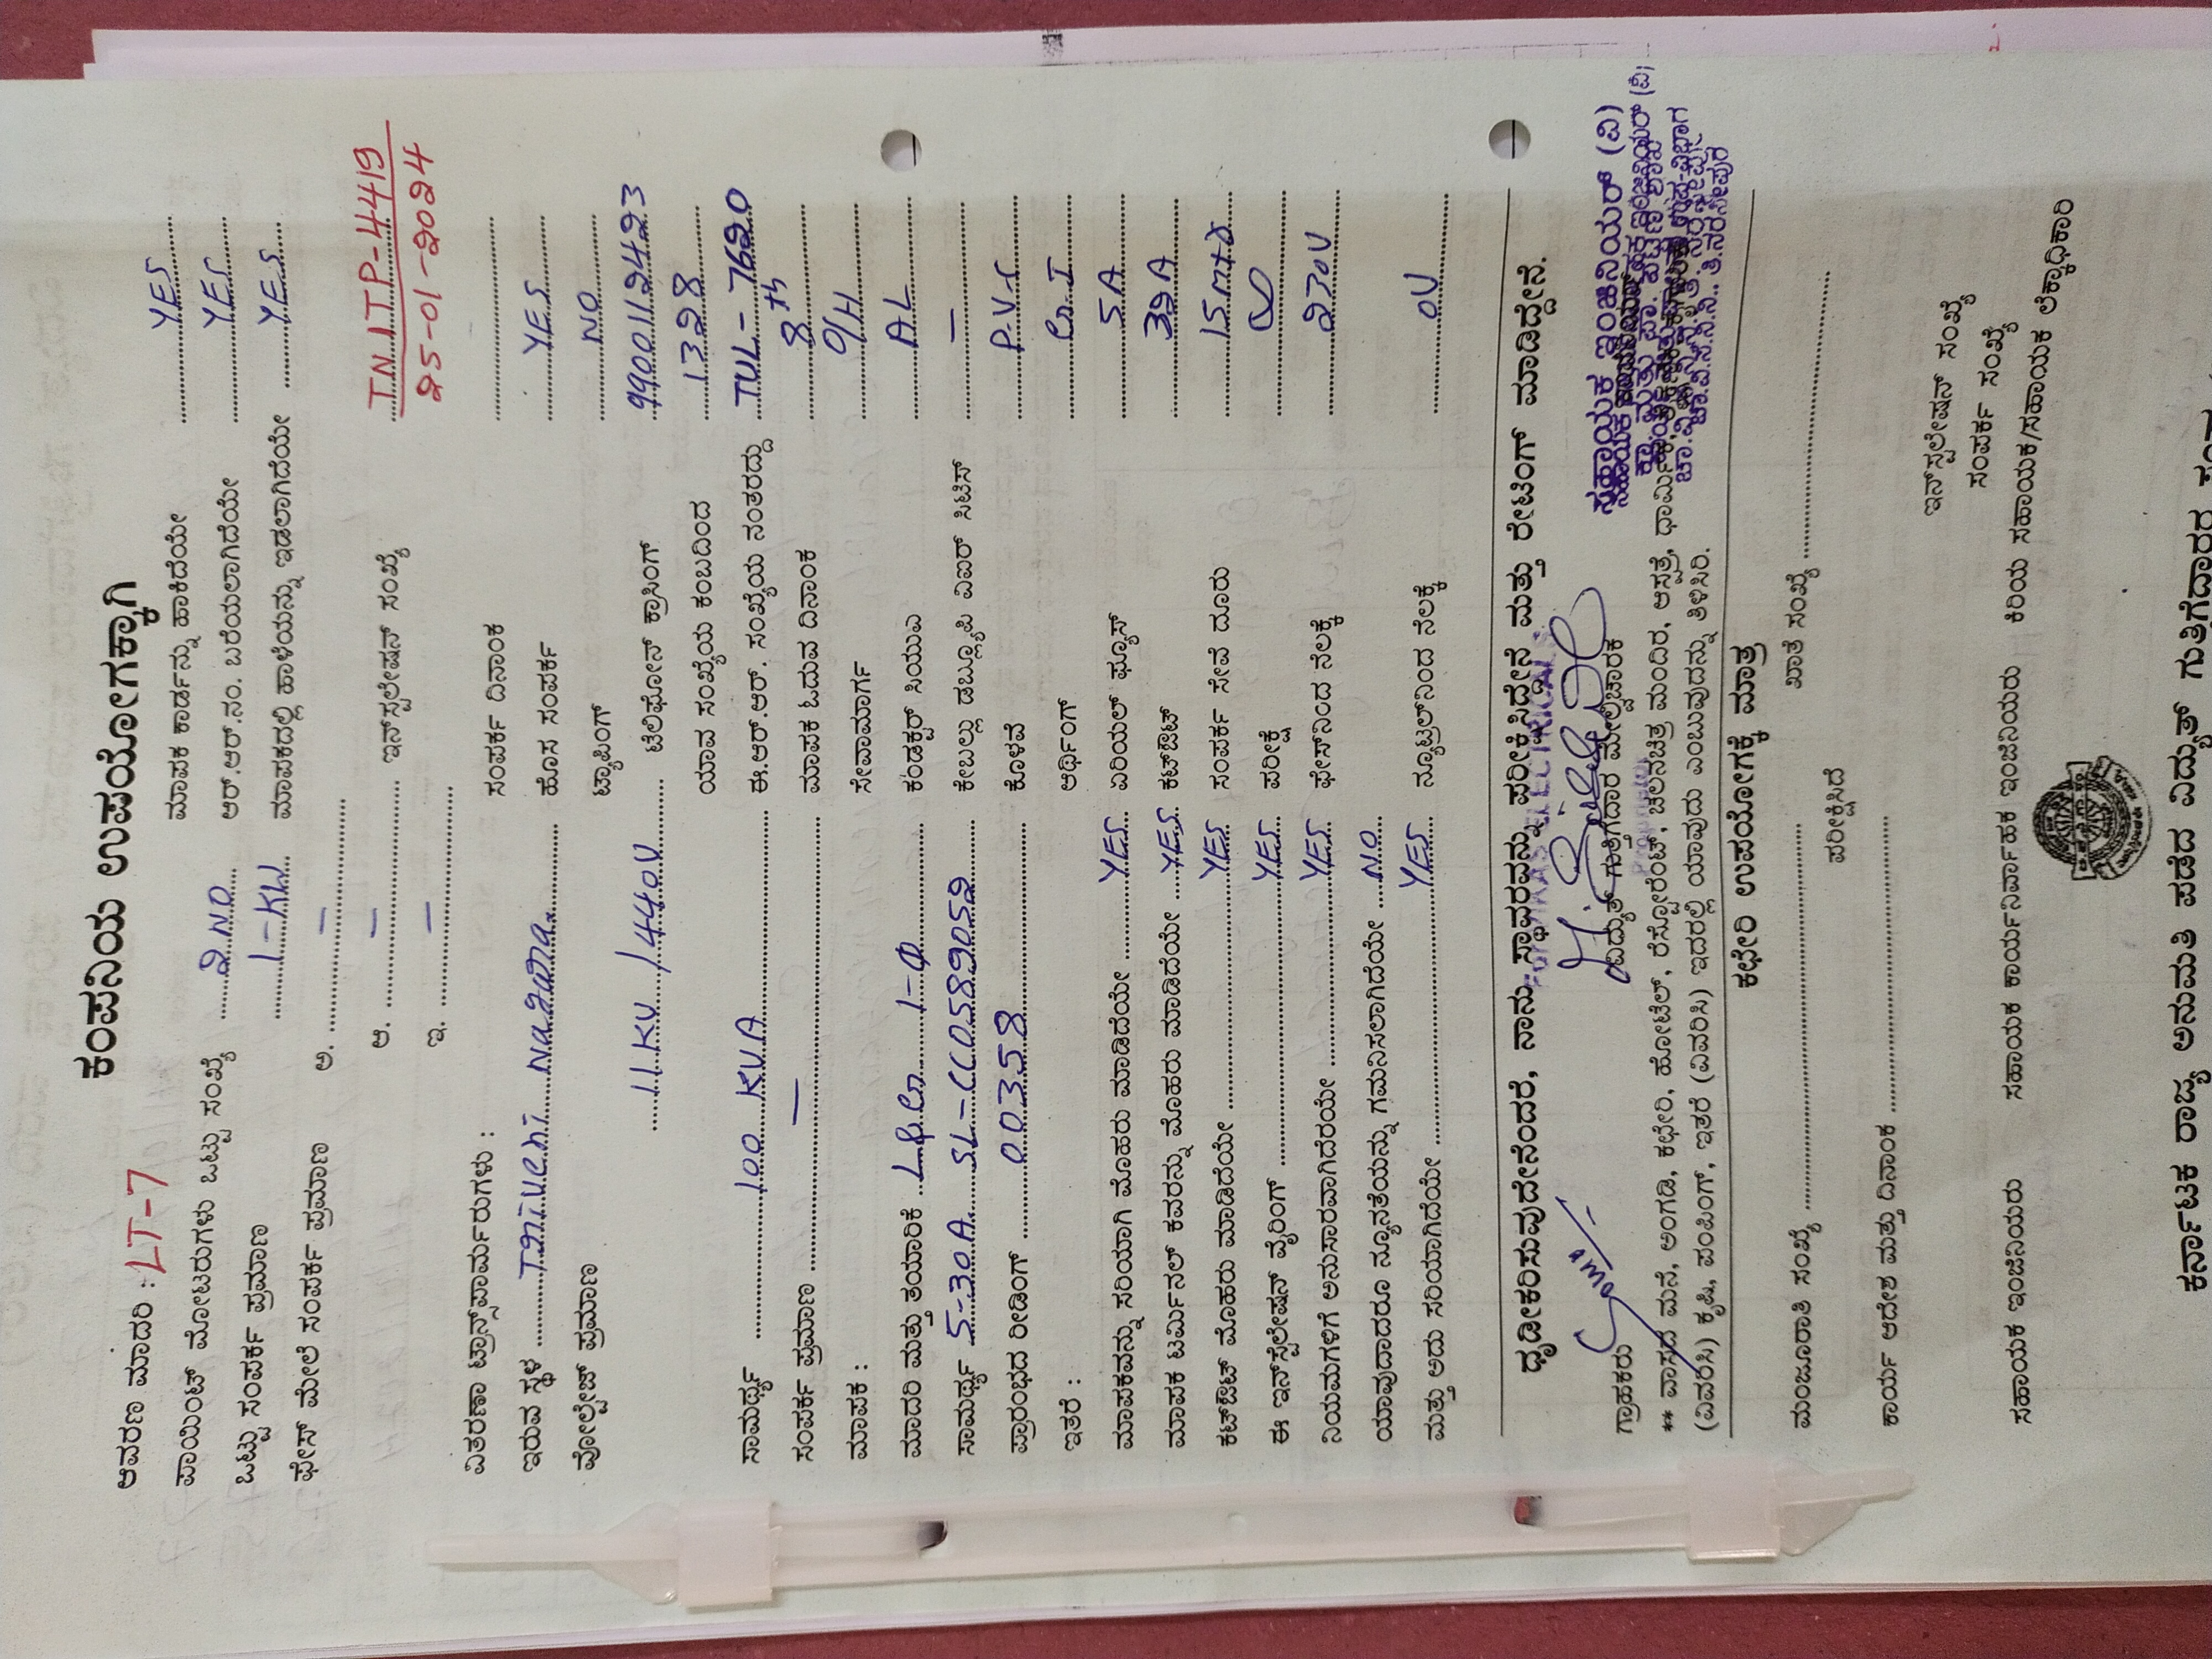 ಕಂಪನಿಯ ಉಪಯೋಗಕ್ಕಾಗಿ
ಆವರಣ ಮಾದರಿ : LT-7
ಮಾಪಕ ಕಾರ್ಡನ್ನು ಹಾಕಿದೆಯೇ YES
ಪಾಯಿಂಟ್ ಮೋಟರುಗಳು ಒಟ್ಟು ಸಂಖ್ಯೆ 2 NO
ಆರ್.ಆರ್.ನಂ. ಬರೆಯಲಾಗಿದೆಯೇ YES
ಒಟ್ಟು ಸಂಪರ್ಕ ಪ್ರಮಾಣ 1-KW
ಮಾಪಕದಲ್ಲಿ ಹಾಳೆಯನ್ನು ಇಡಲಾಗಿದೆಯೇ YES
ಫೇಸ್ ಮೇಲೆ ಸಂಪರ್ಕ ಪ್ರಮಾಣ ಅ. —
ಆ. — ಇನ್‌ಸ್ಟಲೇಷನ್ ಸಂಖ್ಯೆ T.N.ITP-4419
ಇ. — 25-01-2024
ವಿತರಣಾ ಟ್ರಾನ್ಸ್‌ಫಾರ್ಮರುಗಳು : ಸಂಪರ್ಕ ದಿನಾಂಕ
ಇರುವ ಸ್ಥಳ Triveni Nagara ಹೊಸ ಸಂಪರ್ಕ YES
ವೋಲ್ಟೇಜ್ ಪ್ರಮಾಣ ಟ್ಯಾಪಿಂಗ್ NO
11KV / 440V ಟೆಲಿಫೋನ್ ಕ್ರಾಸಿಂಗ್ 9900119423
ಯಾವ ಸಂಖ್ಯೆಯ ಕಂಬದಿಂದ 1328
ಸಾಮರ್ಥ್ಯ 100 KVA ಈ.ಆರ್.ಆರ್. ಸಂಖ್ಯೆಯ ನಂತರದ್ದು TUL-7620
ಸಂಪರ್ಕ ಪ್ರಮಾಣ — ಮಾಪಕ ಓದುವ ದಿನಾಂಕ 8th
ಮಾಪಕ : ಸೇವಾಮಾರ್ಗ O/H
ಮಾದರಿ ಮತ್ತು ತಯಾರಿಕೆ L&G 1-Φ ಕಂಡಕ್ಟರ್ ಸಿಯುಎ AL
ಸಾಮರ್ಥ್ಯ 5-30A SL-CC0589052 ಕೇಬಲ್ಲು ಡಬ್ಲ್ಯೂಪಿ ಎಐಆರ್ ಸಿಟಿಸ್ —
ಪ್ರಾರಂಭದ ರೀಡಿಂಗ್ 00358 ಕೊಳವೆ P.V.C
ಇತರೆ : ಅರ್ಥಿಂಗ್ G.I
ಮಾಪಕವನ್ನು ಸರಿಯಾಗಿ ಮೊಹರು ಮಾಡಿದೆಯೇ YES ಏರಿಯಲ್ ಫ್ಯೂಸ್ 5A
ಮಾಪಕ ಟರ್ಮಿನಲ್ ಕವರನ್ನು ಮೊಹರು ಮಾಡಿದೆಯೇ YES ಕಟ್‌ಔಟ್ 32A
ಕಟ್‌ಔಟ್ ಮೊಹರು ಮಾಡಿದೆಯೇ YES ಸಂಪರ್ಕ ಸೇವೆ ದೂರು 15mtr
ಈ ಇನ್‌ಸ್ಟಲೇಷನ್ ವೈರಿಂಗ್ YES ಪರೀಕ್ಷೆ ∞
ನಿಯಮಗಳಿಗೆ ಅನುಸಾರವಾಗಿದೆರಯೇ YES ಫೇಸ್‌ನಿಂದ ನೆಲಕ್ಕೆ 230V
ಯಾವುದಾದರೂ ನ್ಯೂನತೆಯನ್ನು ಗಮನಿಸಲಾಗಿದೆಯೇ NO
ಮತ್ತು ಅದು ಸರಿಯಾಗಿದೆಯೇ YES ನ್ಯೂಟ್ರಲ್‌ನಿಂದ ನೆಲಕ್ಕೆ 0V
ಧೃಡೀಕರಿಸುವುದೇನೆಂದರೆ, ನಾನು ಸ್ಥಾವರವನ್ನು ಪರೀಕ್ಷಿಸಿದ್ದೇನೆ ಮತ್ತು ರೇಟಿಂಗ್ ಮಾಡಿದ್ದೇನೆ.
ಸಹಾಯಕ ಇಂಜಿನಿಯರ್ (ವಿ)
ಗ್ರಾಹಕರು ವಿದ್ಯುತ್ ಗುತ್ತಿಗೆದಾರ ಮೇಲ್ವಿಚಾರಕ
** ವಾಸದ ಮನೆ, ಅಂಗಡಿ, ಕಛೇರಿ, ಹೋಟೆಲ್, ರೆಸ್ಟೋರೆಂಟ್, ಚಲನಚಿತ್ರ ಮಂದಿರ, ಆಸ್ಪತ್ರೆ, ಧಾರ್ಮಿಕ
(ವಿವರಿಸಿ) ಕೃಷಿ, ಪಂಪಿಂಗ್, ಇತರೆ (ವಿವರಿಸಿ) ಇದರಲ್ಲಿ ಯಾವುದು ಎಂಬುವುದನ್ನು ತಿಳಿಸಿರಿ.
ಕಛೇರಿ ಉಪಯೋಗಕ್ಕೆ ಮಾತ್ರ
ಮಂಜೂರಾತಿ ಸಂಖ್ಯೆ ಖಾತೆ ಸಂಖ್ಯೆ
ಪರೀಕ್ಷಿಸಿದೆ
ಕಾರ್ಯ ಆದೇಶ ಮತ್ತು ದಿನಾಂಕ
ಇನ್‌ಸ್ಟಲೇಷನ್ ಸಂಖ್ಯೆ
ಸಂಪರ್ಕ ಸಂಖ್ಯೆ
ಸಹಾಯಕ ಇಂಜಿನಿಯರು ಸಹಾಯಕ ಕಾರ್ಯನಿರ್ವಾಹಕ ಇಂಜಿನಿಯರು ಕಿರಿಯ ಸಹಾಯಕ/ಸಹಾಯಕ ಲೆಕ್ಕಾಧಿಕಾರಿ
ಕರ್ನಾಟಕ ರಾಜ್ಯ ಅನುಮತಿ ಪಡೆದ ವಿದ್ಯುತ್ ಗುತ್ತಿಗೆದಾರರ